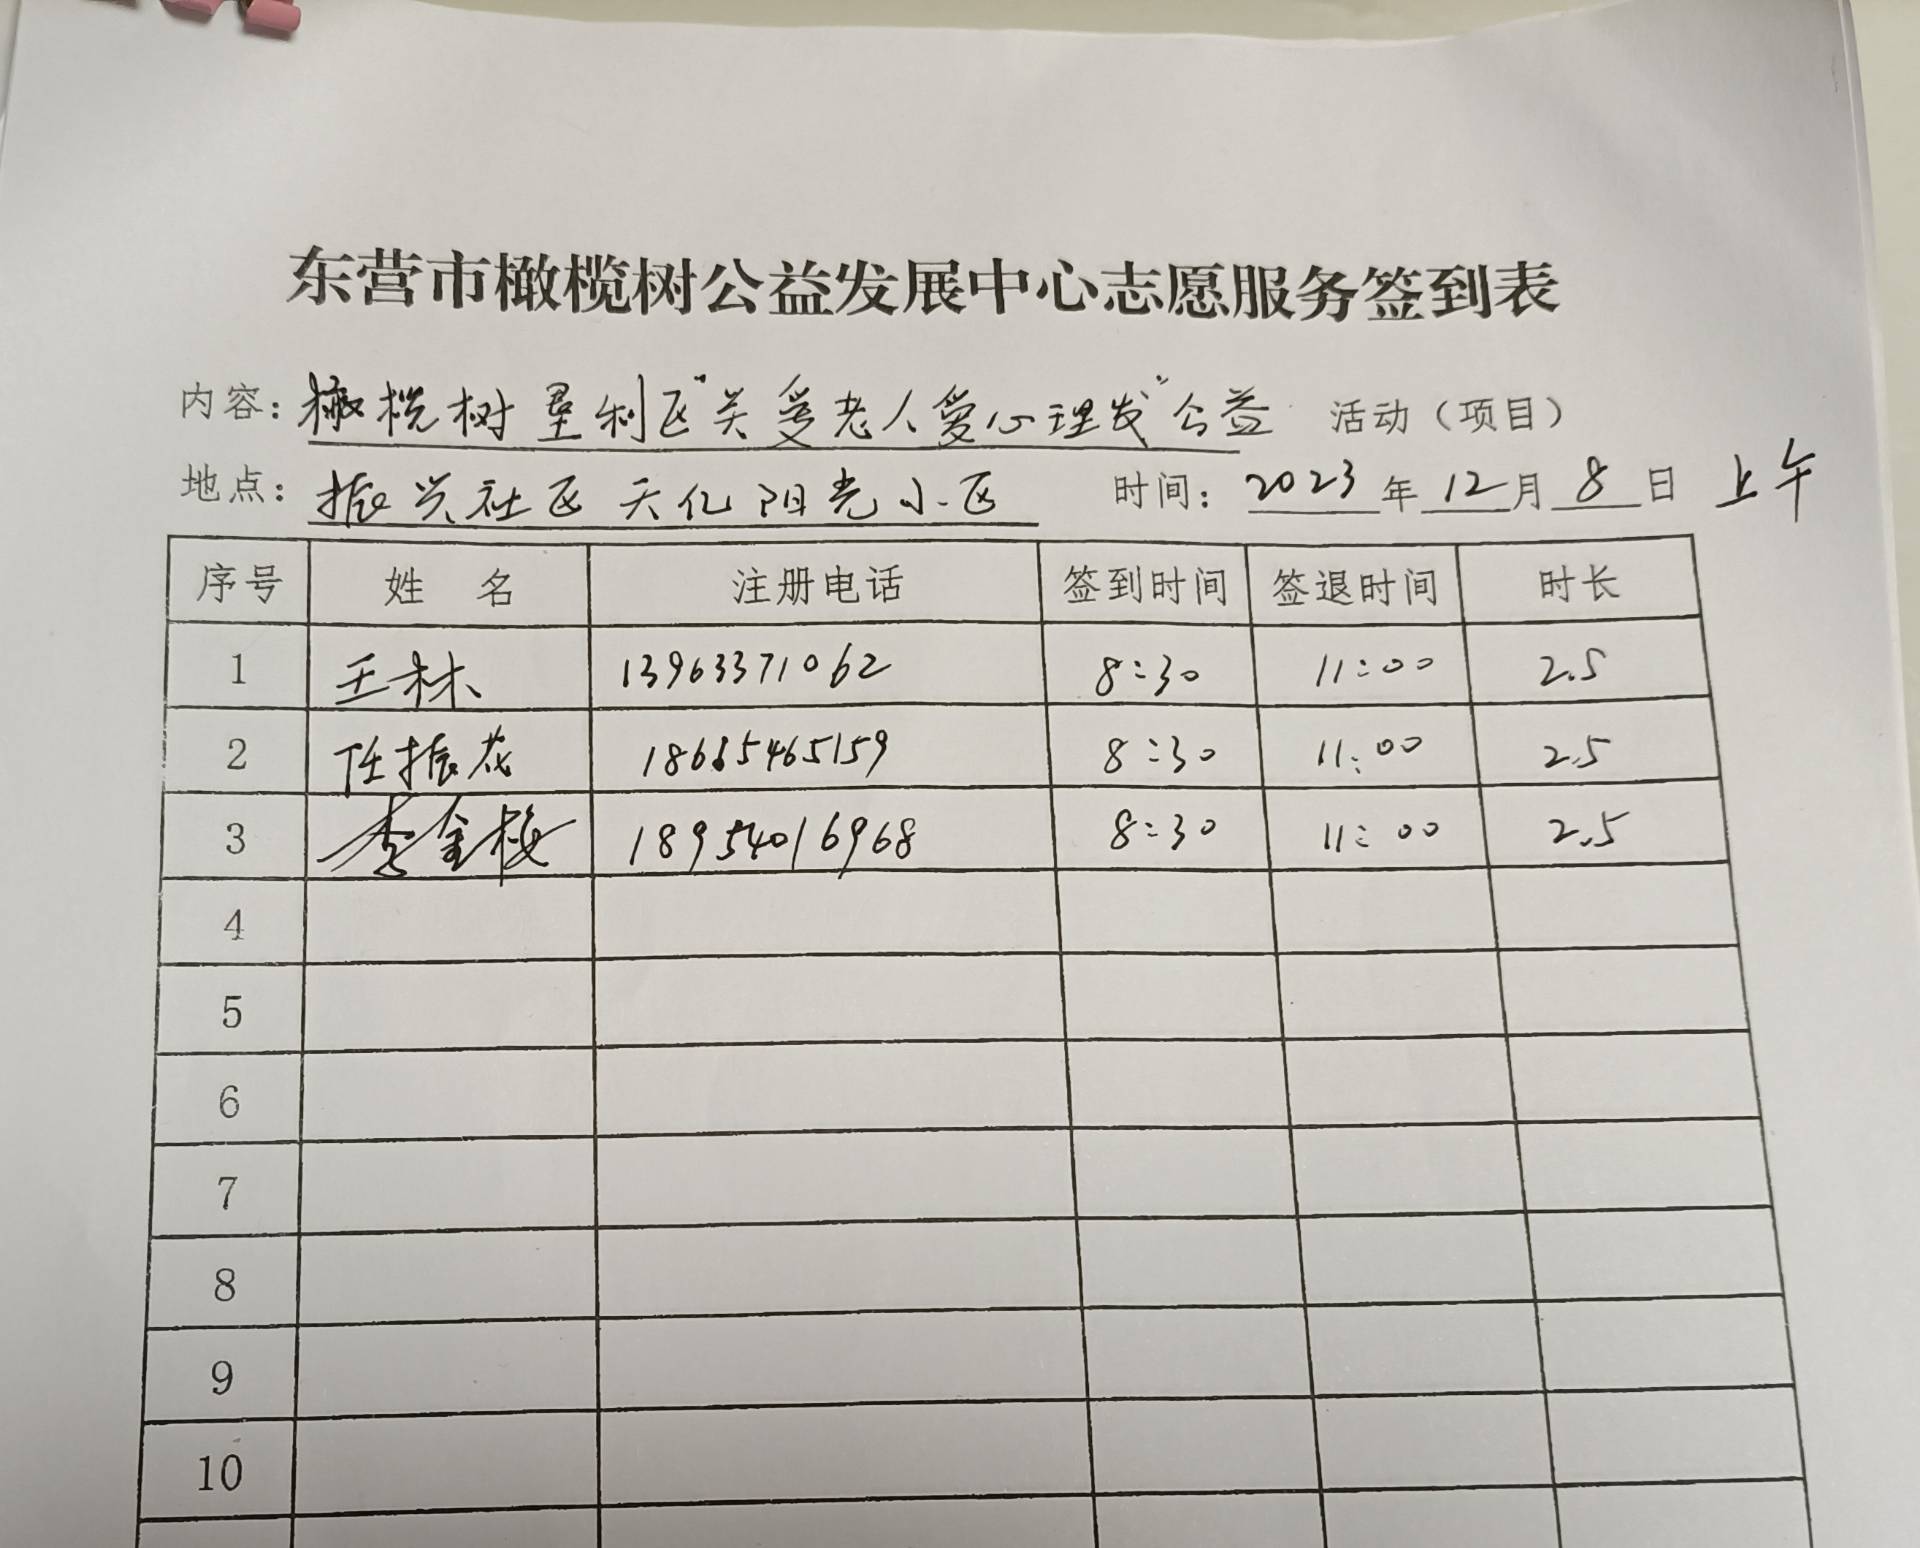 东营市橄榄树公益发展中心志愿服务签到表
内容：橄榄树垦利区“关爱老人爱心理发”公益 活动（项目）
地点：振兴社区天亿阳光小区 时间：2023年12月8日 上午
序号 姓 名 注册电话 签到时间 签退时间 时长
1 王林 13963371062 8:30 11:00 2.5
2 任振花 18615465159 8:30 11:00 2.5
3 李金梅 18954016968 8:30 11:00 2.5
4
5
6
7
8
9
10